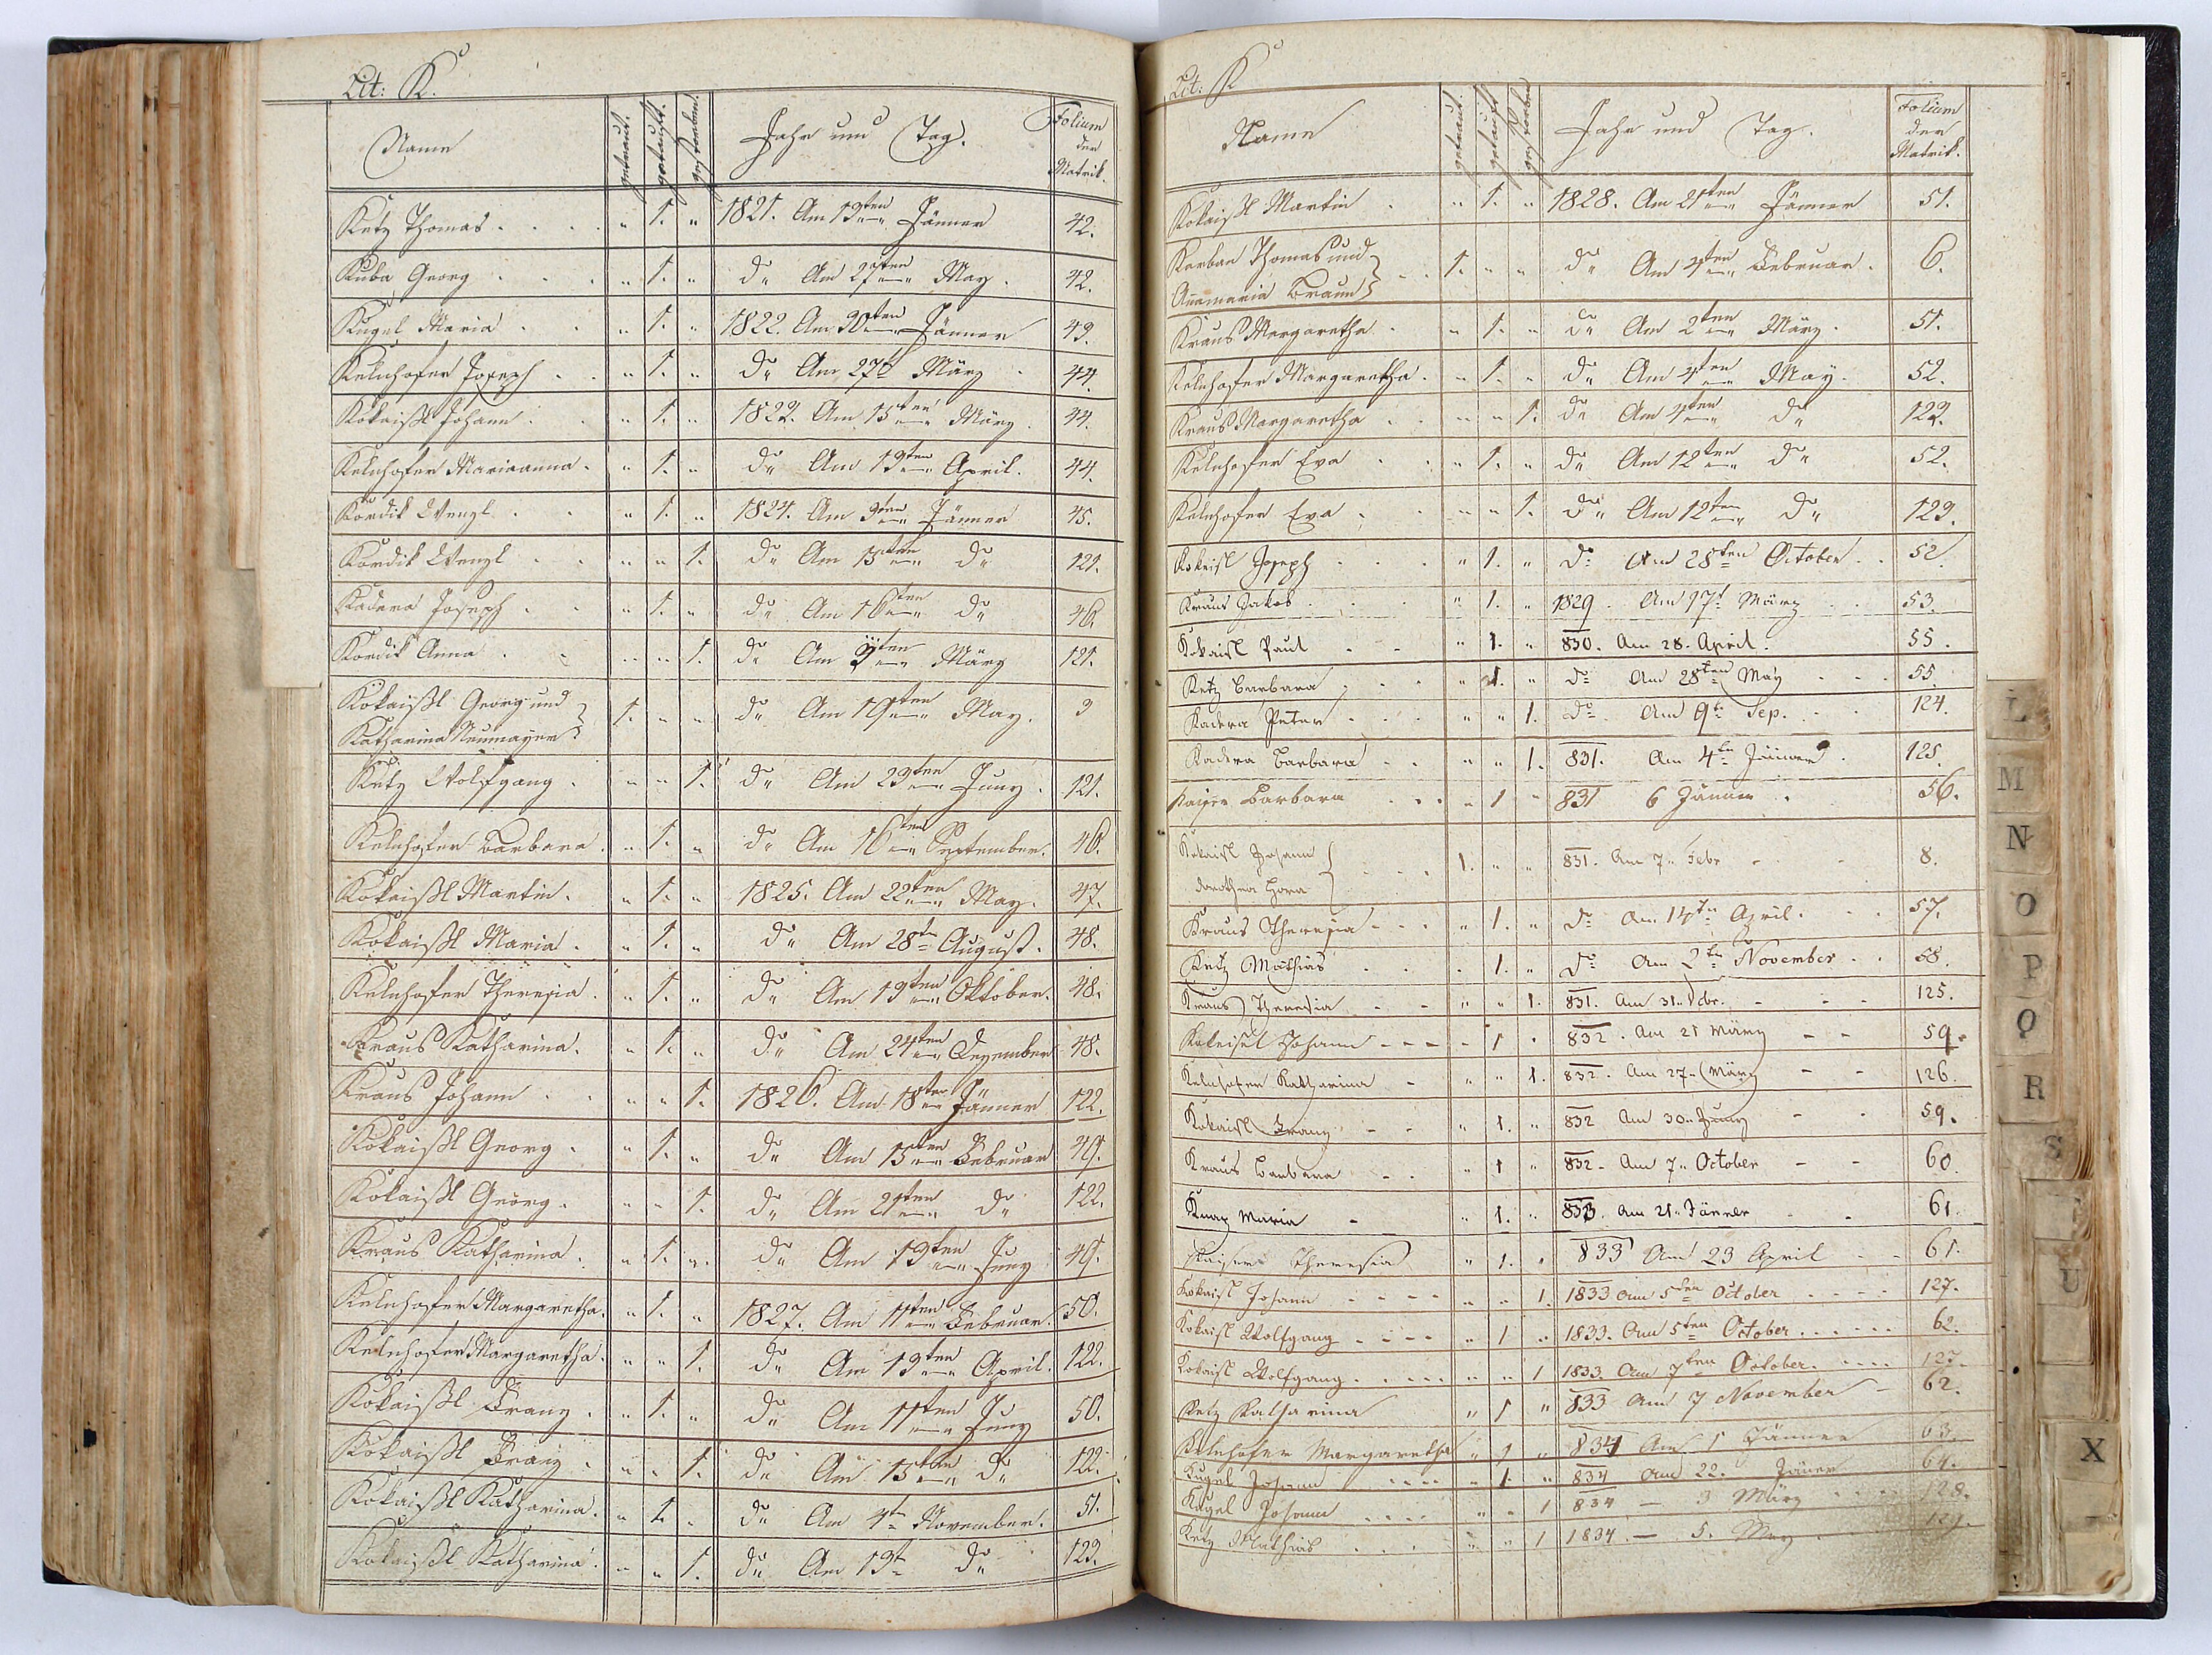 Lit: K.
Name getraut. getauft. gestorben. Jahr und Tag. Folium der Matrik.
Ketz Thomas . . . . „ 1. „ 1821. Am 13ten Jänner 42.
Kuba Georg . . . „ 1. „ do Am 27ten May. 42.
Kugel Maria . . „ 1. „ 1822. Am 30ten Jänner 43.
Kelnhofer Joseph . . „ 1. „ do Am 27t März 44.
Kokaißl Johann . . „ 1. „ 1823. Am 15ten März. 44.
Kelnhofer Marianna. „ 1. „ do Am 13ten April. 44.
Kordik Wenzl . . „ 1. „ 1824. Am 3ten Jänner 45.
Kordik Wenzl . . „ „ 1. do Am 15ten do 121.
Kadera Joseph . . „ 1. „ do Am 16ten do 46.
Kordik Anna . . „ „ 1. do Am ten März 121.
Kokaißl Georg und
Katharina Neumayer } 1. „ „ do Am 19ten May. 3
Ketz Wolfgang . „ „ 1. do Am 23ten Juny. 121.
Kelnhofer Barbara. „ 1. „ do Am 16ten September. 46.
Kokaißl Martin. „ 1. „ 1825. Am 22ten May. 47.
Kokaißl Maria. „ 1. „ do Am 28tn August. 48.
Kelnhofer Theresia. „ 1. „ do Am 13ten Oktober. 48.
Kraus Katharina. „ 1. „ do Am 24ten Dezember 48.
Kraus Johann . . „ „ 1. 1826. Am 18ten Jänner 122.
Kokaißl Georg . „ 1. „ do Am 15ten Februar 49.
Kokaißl Georg. „ „ 1. do Am 21ten do 122.
Kraus Katharina. „ 1. „ do Am 13ten Juny 49.
Kelnhofer Margaretha. „ 1. „ 1827. Am 11ten Februar. 50.
Kelnhofer Margaretha. „ „ 1. do Am 13ten April. 122.
Kokaißl Franz . „ 1. „ do Am 11ten Juny 50.
Kokaißl Franz . „ „ 1. do Am 15ten do 122.
Kokaißl Katharina. „ 1. „ do Am 4tn November. 51.
Kokaißl Katharina. „ „ 1. do Am 13t do 123.
Lit: K
Name getraut. getauft gestorben Jahr und Tag. Folium der Matrik.
Kokaißl Martin . „ 1. „ 1828. Am 21ten Jänner 51.
Korban Thomas und
Annamaria Braun } . . 1. „ „ do Am 4ten Februar. 6.
Kraus Margaretha . „ 1. „ do Am 2ten März. 51.
Kelnhofer Margaretha. „ 1. „ do Am 4ten May. 52.
Kraus Margaretha . . „ „ 1. do Am 4ten do 123.
Kelnhofer Eva . . „ 1. „ do Am 12ten do 52.
Kelnhofer Eva . . „ „ 1. do Am 12ten do 123.
Kokaisl Joseph . . . „ 1. „ do Am 28ten October . . 52.
Kraus Jakob . . . „ 1. „ 1829. Am 17t März . . 53.
Kokaisl Paul - - „ 1. „ 830. Am 28. April. 55.
Ketz Barbara . . . „ 1. „ do Am 28ten May - - - 55.
Kadera Peter . . . „ „ 1. do Am 9t Sep. - - 124.
Kadera Barbara . . „ „ 1. 831. Am 4tn Jänner . 125.
Kaiser Barbara . . . „ 1 „ 831 6 Jänner . 56.
Kokaisl Johann
Dorothea Hora } . . . 1. „ „ 831. Am 7. Febr - - - 8.
Kraus Theresia - - - „ 1. „ do Am 14tn April. . . 57.
Ketz Mathias . . . 1. „ do Am 2tn November . . 58.
Kraus Theresia - - „ „ 1. 831. Am 31. - - - 125.
Kokeisel Johann - - - - 1 „ 832. Am 21 März - - 59.
Kelnhofer Katharina - „ „ 1. 832. Am 27. März - - 126.
Kokaisl Franz - - „ 1. „ 832 Am 30. Juny - - 59.
Kraus Barbara - . „ 1 „ 832 - Am 7. October - - 60.
Knap Maria - „ 1. „ 833. Am 21. Jänner - - 61.
Kaiser Theresia „ 1. „ 833 Am 23 April - - 61.
Kokaisl Johann - - - - „ „ 1. 1833 Am 5ten October . . . . 127.
Kokaisl Wolfgang - - - - „ 1 „ 1833. Am 5ten October . . . . . . 62.
Kokaisl Wolfgang . . . . . „ „ 1 1833. Am 7ten October. . . . . 127.
Ketz Katharina „ 1 „ 833 Am 7 November - 62.
Kelnhofer Margaretha „ 1 „ 834 Am 1 Jänner 63.
Kugel Johann . . . . „ 1. „ 834 Am 22. Jäner 64.
Kugel Johann . . . . „ „ 1 834 — 3 März . . . . 128.
Ketz Mathias . . . „ „ 1 1834. — 5. May .
L
M
N
O
P
Q
R
S
U
X